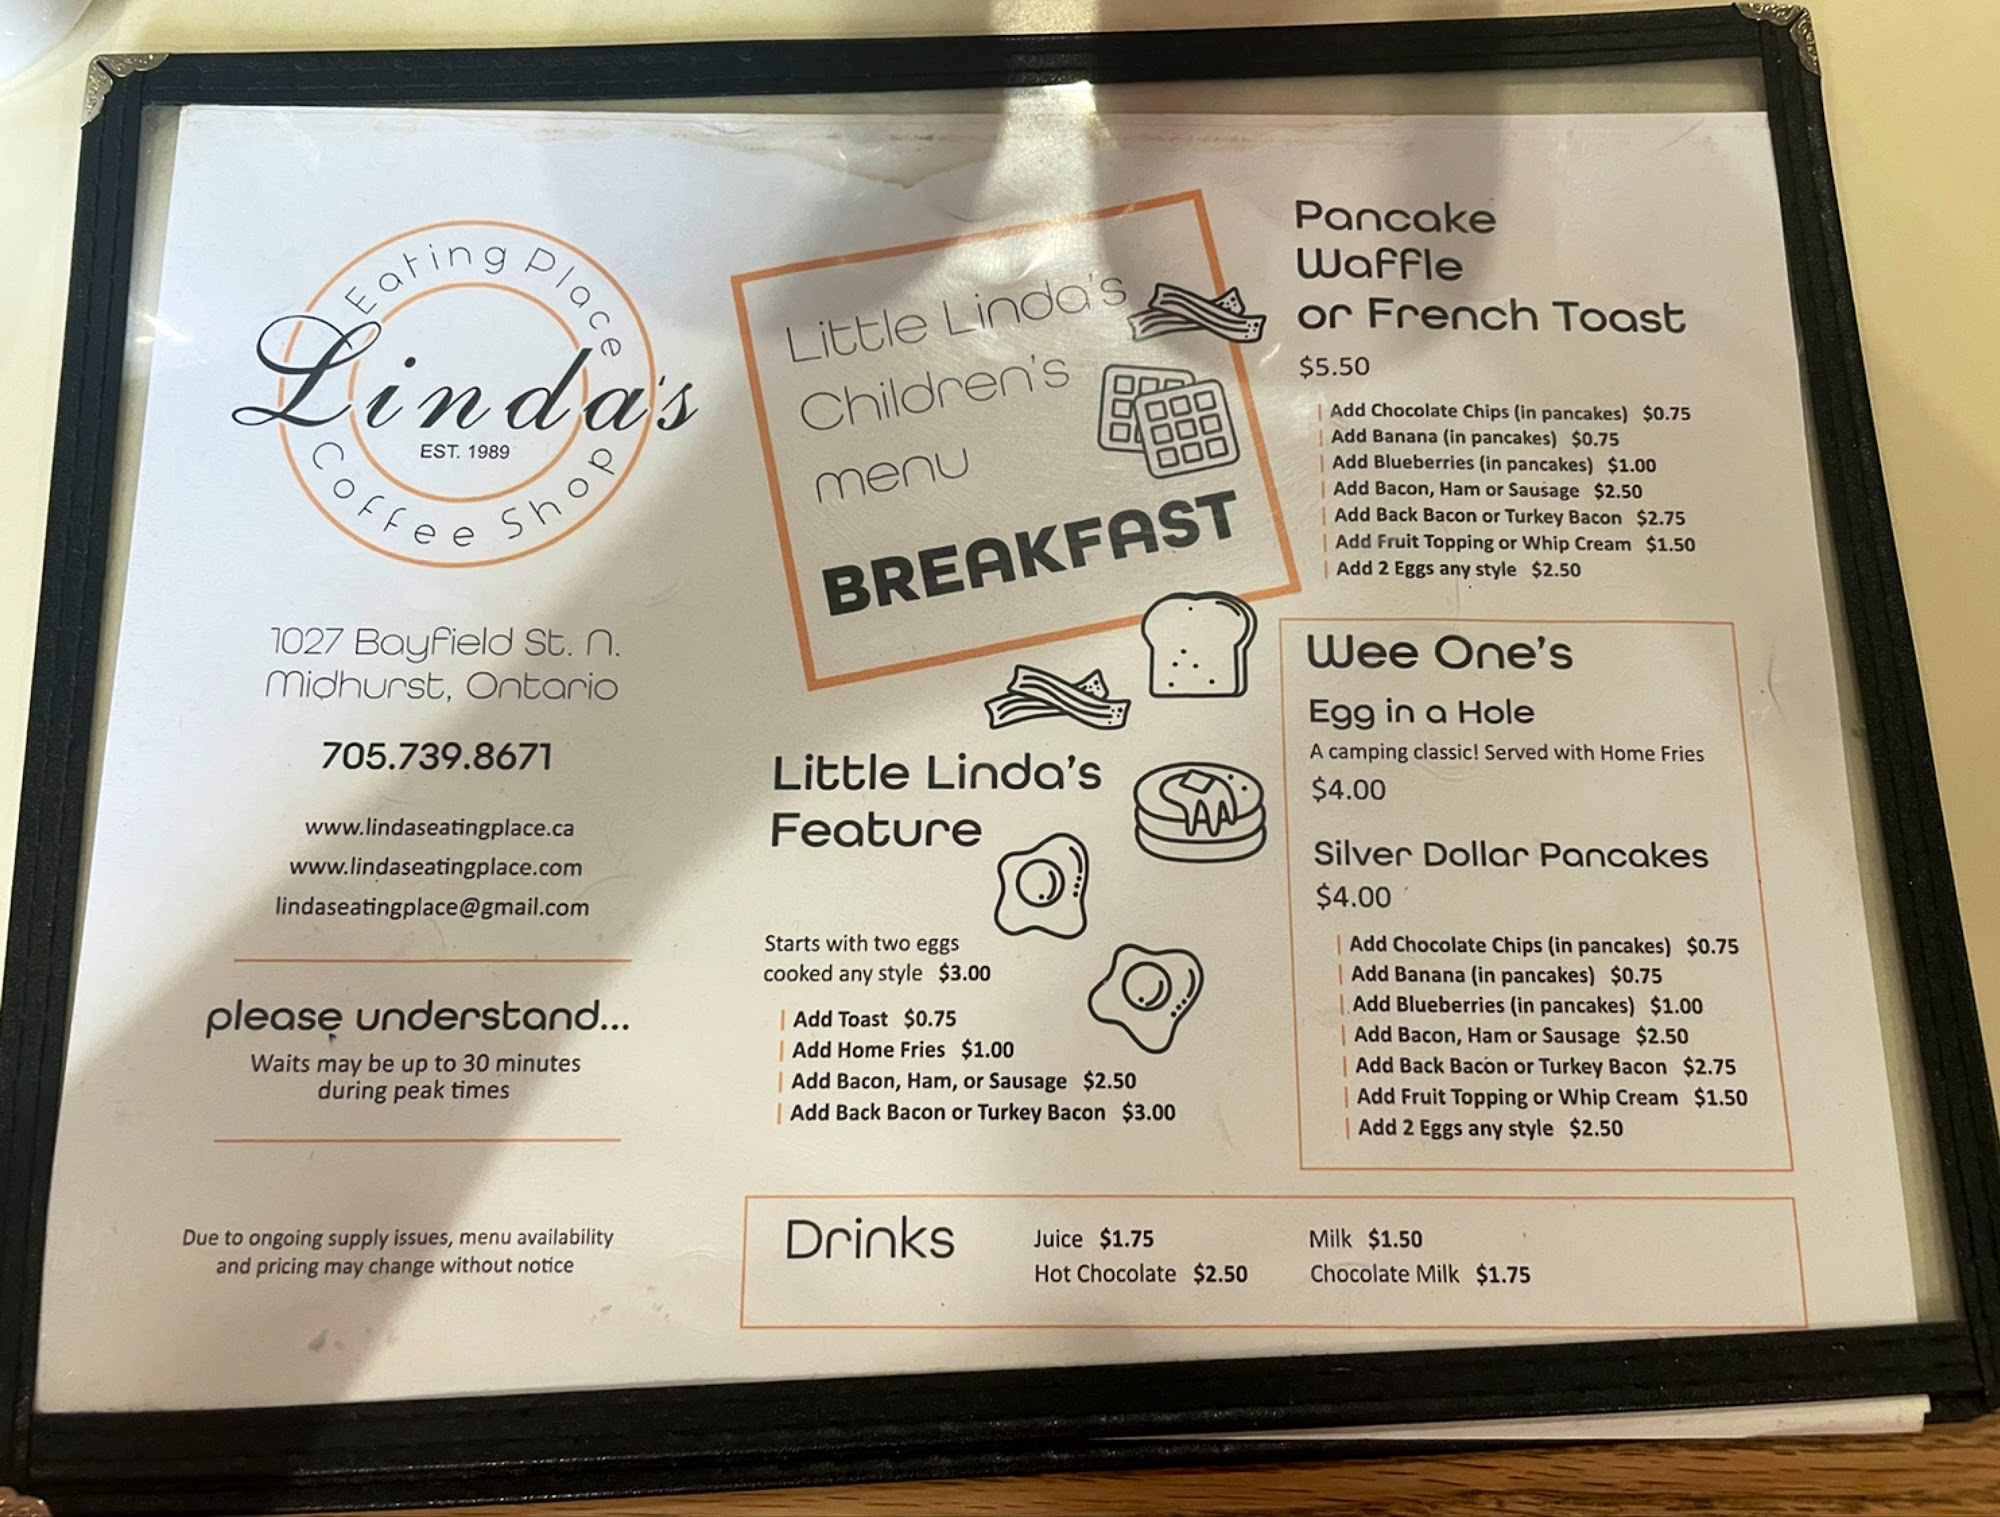 Eating Place
Linda's
EST. 1989
Coffee Shop
1027 Bayfield St. N.
Midhurst, Ontario
705.739.8671
www.lindaseatingplace.ca
www.lindaseatingplace.com
lindaseatingplace@gmail.com
please understand...
Waits may be up to 30 minutes
during peak times
Due to ongoing supply issues, menu availability
and pricing may change without notice
Little Linda's
Children's
menu
BREAKFAST
Little Linda's
Feature
Starts with two eggs
cooked any style $3.00
Add Toast $0.75
Add Home Fries $1.00
Add Bacon, Ham, or Sausage $2.50
Add Back Bacon or Turkey Bacon $3.00
Pancake
Waffle
or French Toast
$5.50
Add Chocolate Chips (in pancakes) $0.75
Add Banana (in pancakes) $0.75
Add Blueberries (in pancakes) $1.00
Add Bacon, Ham or Sausage $2.50
Add Back Bacon or Turkey Bacon $2.75
Add Fruit Topping or Whip Cream $1.50
Add 2 Eggs any style $2.50
Wee One's
Egg in a Hole
A camping classic! Served with Home Fries
$4.00
Silver Dollar Pancakes
$4.00
Add Chocolate Chips (in pancakes) $0.75
Add Banana (in pancakes) $0.75
Add Blueberries (in pancakes) $1.00
Add Bacon, Ham or Sausage $2.50
Add Back Bacon or Turkey Bacon $2.75
Add Fruit Topping or Whip Cream $1.50
Add 2 Eggs any style $2.50
Drinks
Juice $1.75
Hot Chocolate $2.50
Milk $1.50
Chocolate Milk $1.75